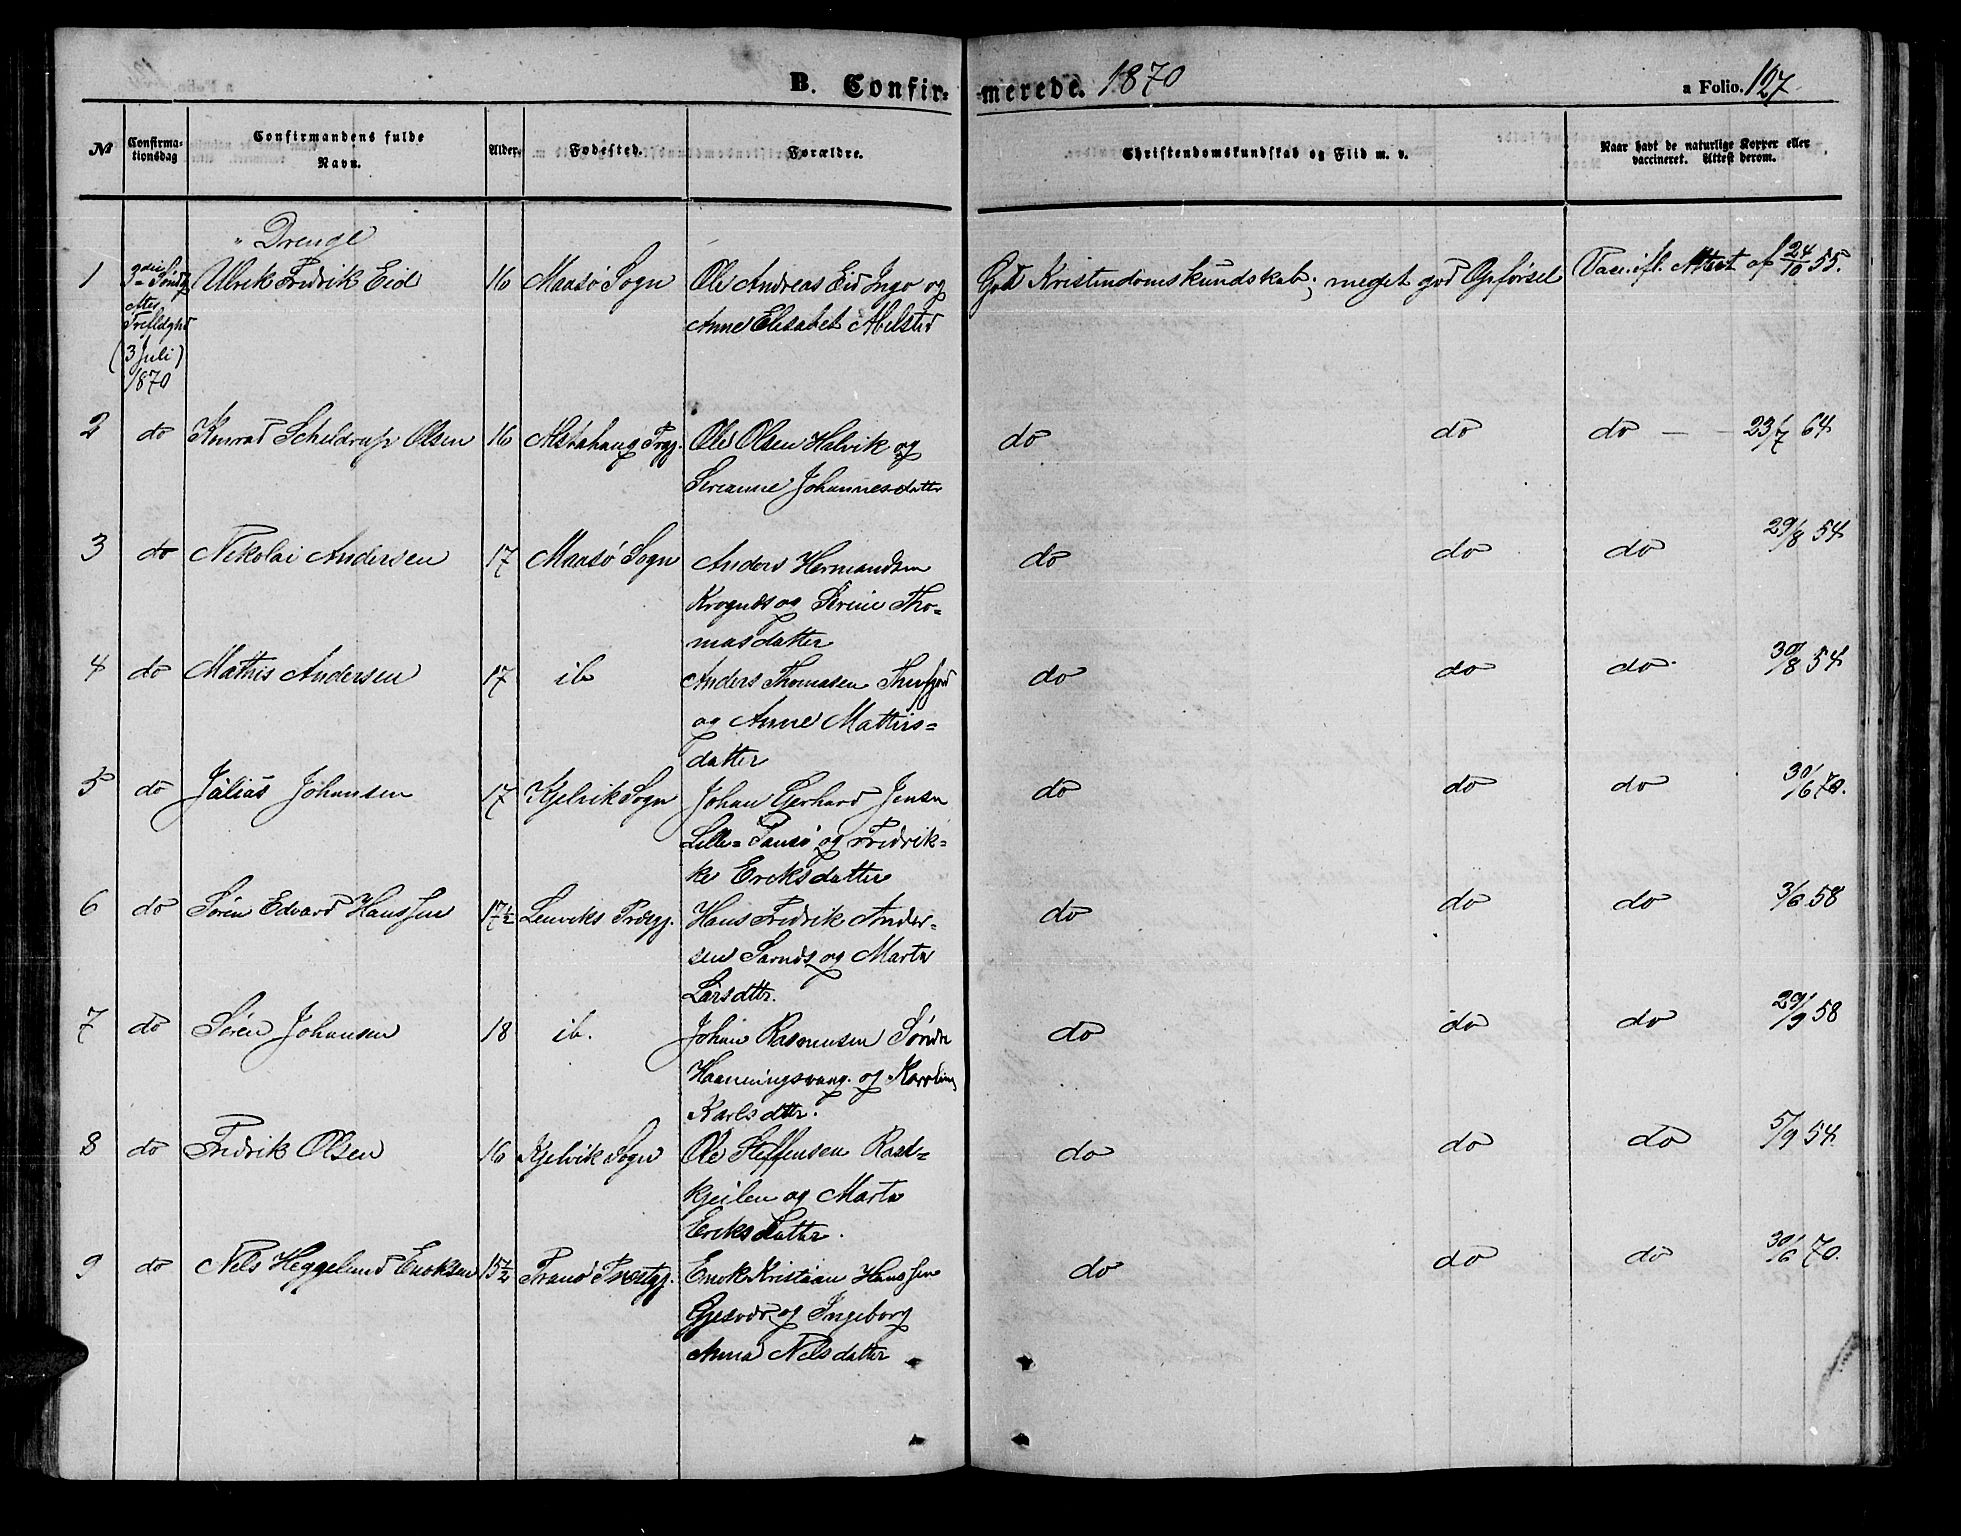 B. Confirmerede. 1870
a Folio. 127.
№ Confirmationsdag Confirmandens fulde Navn. Alder. Fødested. Forældre. Christendomskundskab og Flid m. v. Naar havt de naturlige Kopper eller vaccineret. Attest derom.
" Drenge
1 3die Sønd. efter Trefldghd (3 Juli) 1870 Ulrik Fredrik Eid 16 Maasø Sogn Ole Andreas Eid Ingø og God Kristendomskundskab; meget god Opførsel Vac. ifl. Attest af 24/10 55.
Anne Elisabet Abelsted
2 do Konrad Scheldrup Olsen 16 Alstahaug Prgj. Ole Olsen Halvik og do do do — — 23/7 64
Serianne Johannesdatter
3 do Nikolai Andersen 17 Maasø Sogn Anders Hermandsen do do do 29/8 54
Krognæs og Serine Tho=
masdatter
4 do Mathis Andersen 17 ib Anders Thomasen Thufjord do do do. 30/8 54
og Anne Mathis=
datter
5 do Julius Johansen 17 Kjelvik Sogn Johan Gerhard Jensen do do do 30/6 70.
Lille=Tamsø og Fredrik=
ke Eriksdatter
6 do Søren Edvard Hanssen 17½ Lenviks Præstgj. Hans Fredrik Ander= do do do 3/6 58
sen Sarnæs og Marta
Larsdttr.
7 do Søren Johansen 18 ib. Johan Rasmusen Søndre do do do 29/9 58
Honningsvaag. og Karoline
Karlsdttr.
8 do Fredrik Olsen 16 Kjelvik Sogn Ole Steffensen do do do 5/9 54
kjeilen og Marta
Eriksdatter.
9 do Nils Heggelund Enoksen 15½ Tranø Præstgj. Enok Kristian Hanssen do do do 30/6 70.
Gjesvær og Ingeborg
Anna Nilsdatter